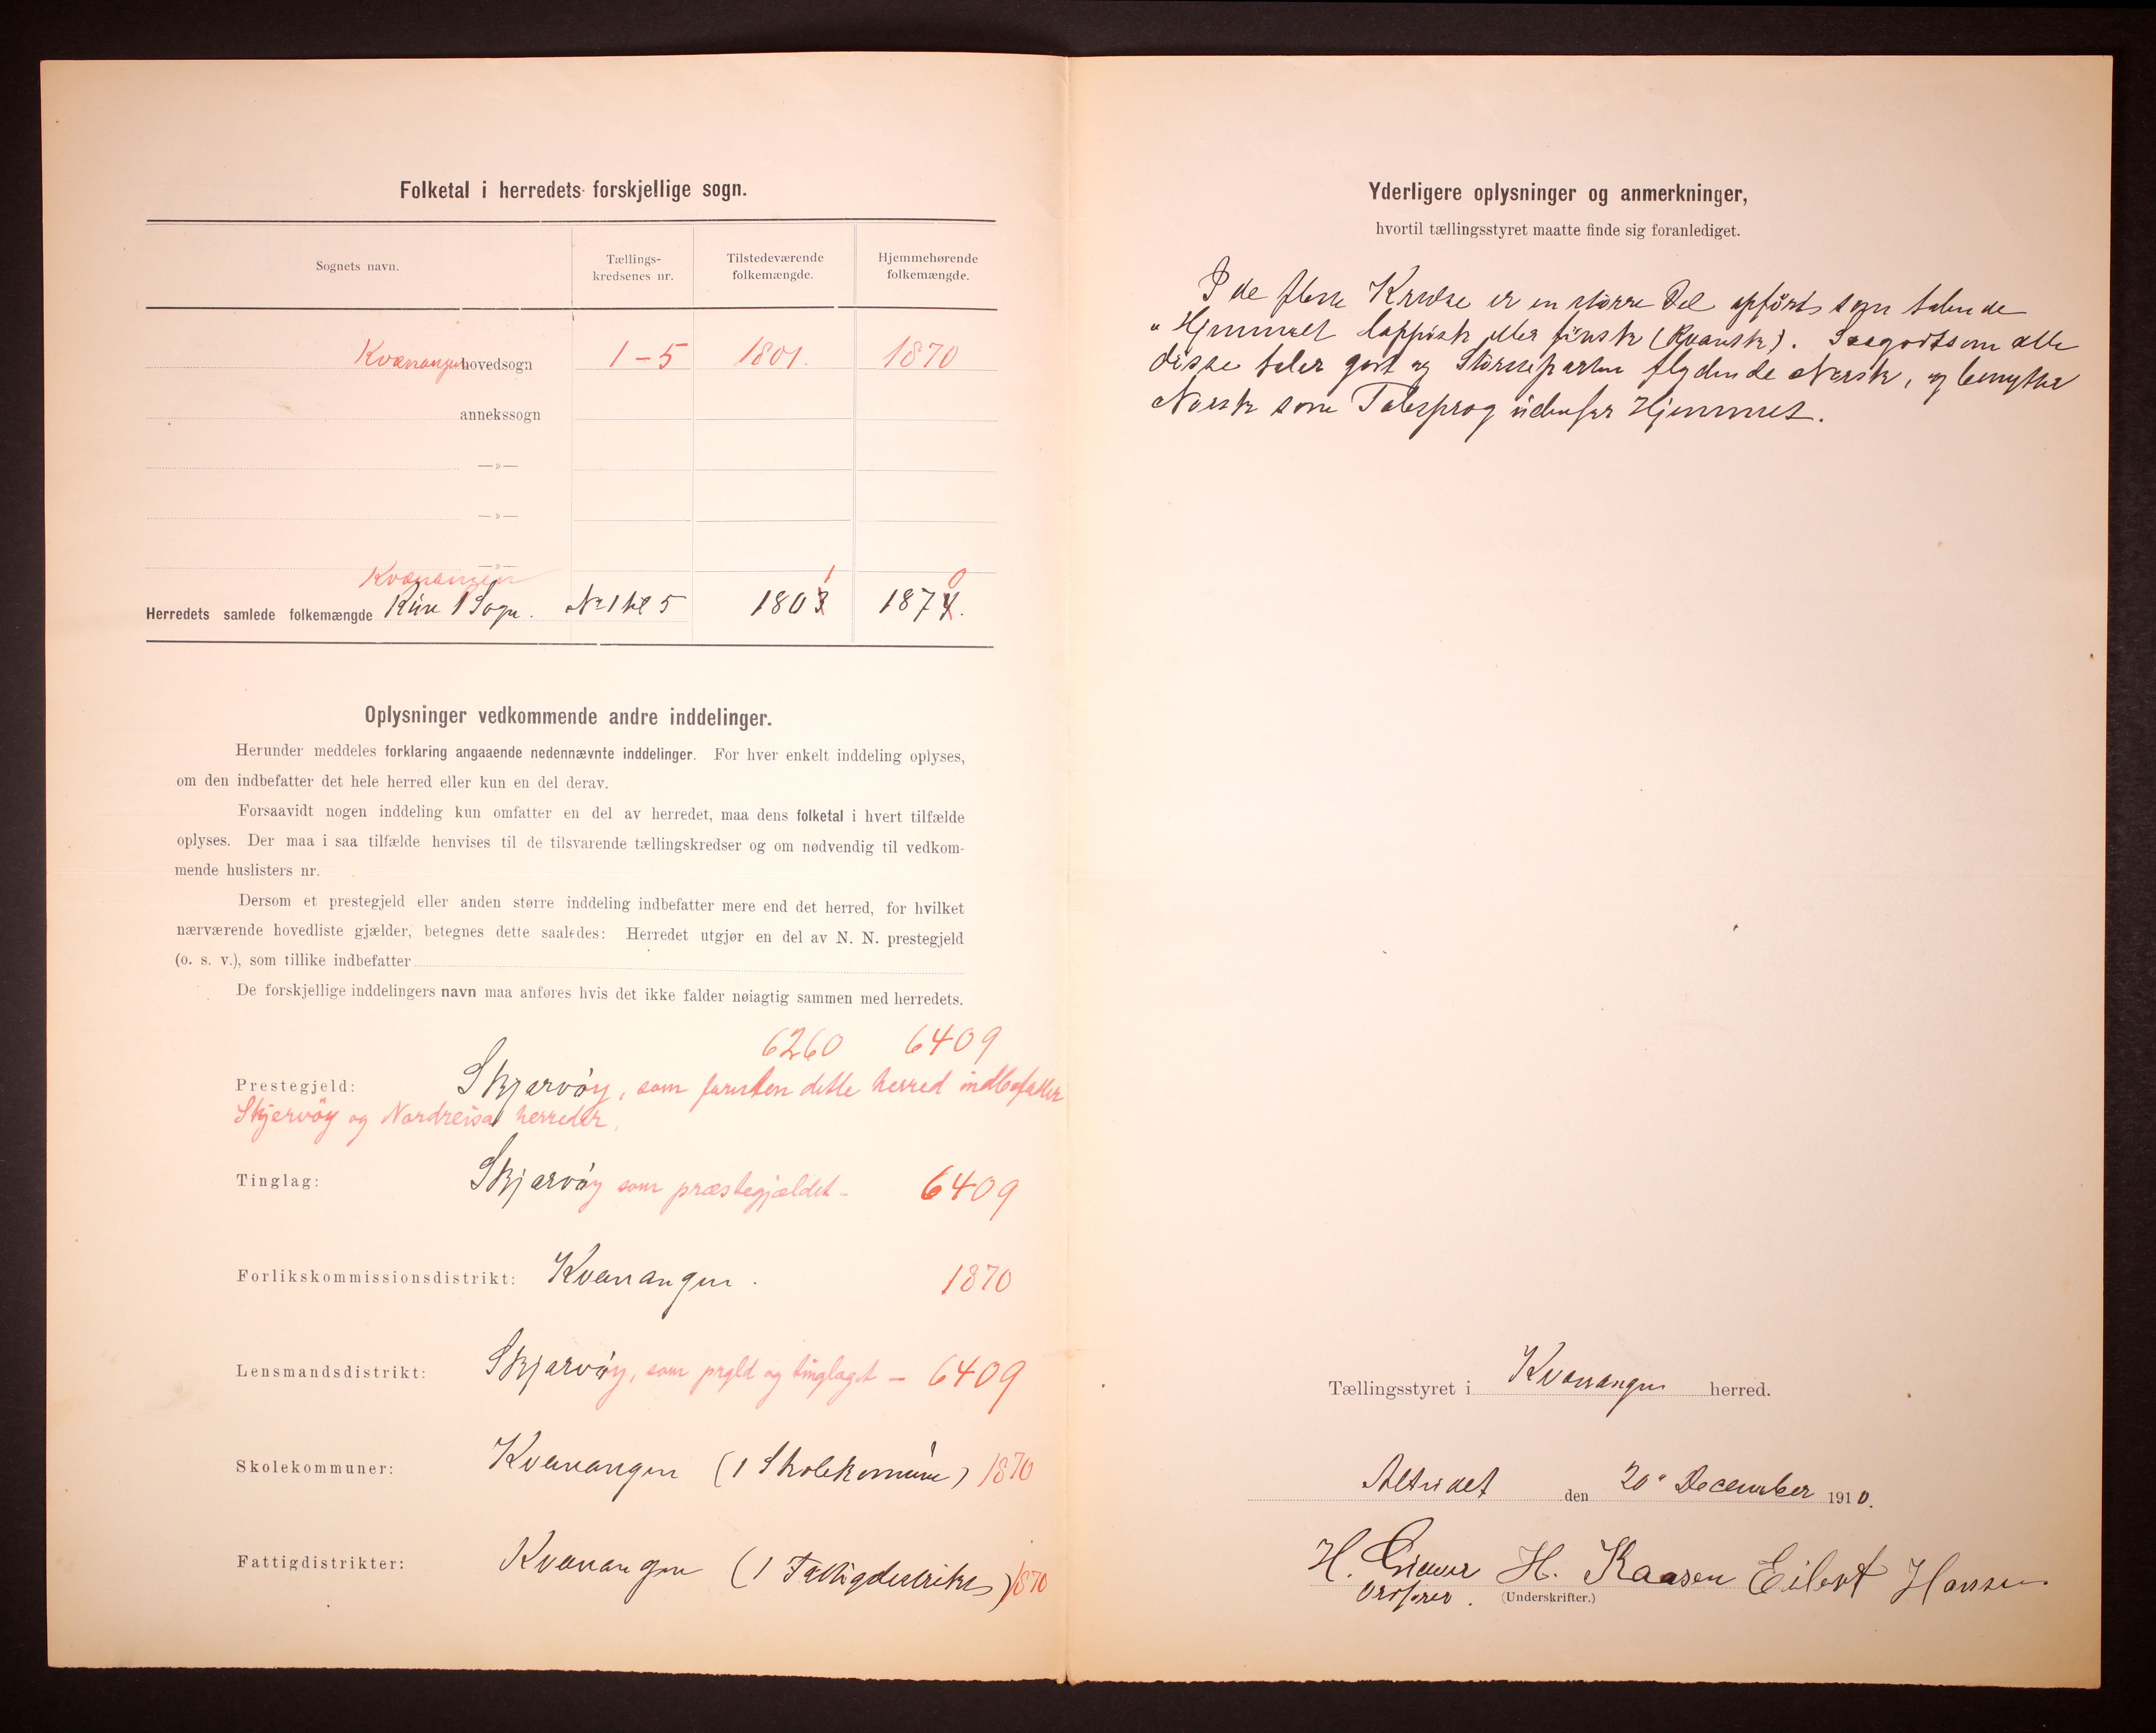 Folketal i herredets forskjellige sogn.
Sognets navn.
Tællings-
kredsenes nr.
Tilstedeværende
folkemængde.
Hjemmehørende
folkemængde.
Kvænangen hovedsogn 1-5 1801. 1870
annekssogn
—»—
—»—
—»—
Kvænangen 1 0
Herredets samlede folkemængde Kun 1 Sogn. No 1 til 5 1803 1874.
Oplysninger vedkommende andre inddelinger.
Herunder meddeles forklaring angaaende nedennævnte inddelinger. For hver enkelt inddeling oplyses,
om den indbefatter det hele herred eller kun en del derav.
Forsaavidt nogen inddeling kun omfatter en del av herredet, maa dens folketal i hvert tilfælde
oplyses. Der maa i saa tilfælde henvises til de tilsvarende tællingskredser og om nødvendig til vedkom-
mende huslisters nr.
Dersom et prestegjeld eller anden større inddeling indbefatter mere end det herred, for hvilket
nærværende hovedliste gjælder, betegnes dette saaledes: Herredet utgjør en del av N. N. prestegjeld
(o. s. v.), som tillike indbefatter
De forskjellige inddelingers navn maa anføres hvis det ikke falder nøiagtig sammen med herredets.
6260 6409
Prestegjeld: Skjærvöy, som foruten dette herred indbefatter
Skjervöy og Nordreisa herreder.
Tinglag: Skjærvöy som præstegjældet - 6409
Forlikskommissionsdistrikt: Kvænangen. 1870
Lensmandsdistrikt: Skjærvöy, som prgld og tinglaget - 6409
Skolekommuner: Kvænangen (1 Skolekomune) 1870
Fattigdistrikter: Kvænangen (1 Fattigdistrikt) 1870
Yderligere oplysninger og anmerkninger,
hvortil tællingsstyret maatte finde sig foranlediget.
I de fleste Kredse er en större Del opfört som talende
i Hjemmet lappisk eller finsk (Kvænsk). Saagodtsom alle
disse taler godt og Störsteparten flydende Norsk, og benytter
Norsk som Talesprog udenfor Hjemmet.
Tællingsstyret i Kvænangen herred.
Alteidet den 20' December 1910.
H. Giæver H. Kaasen Eilert Hansen
Ordfører. (Underskrifter.)